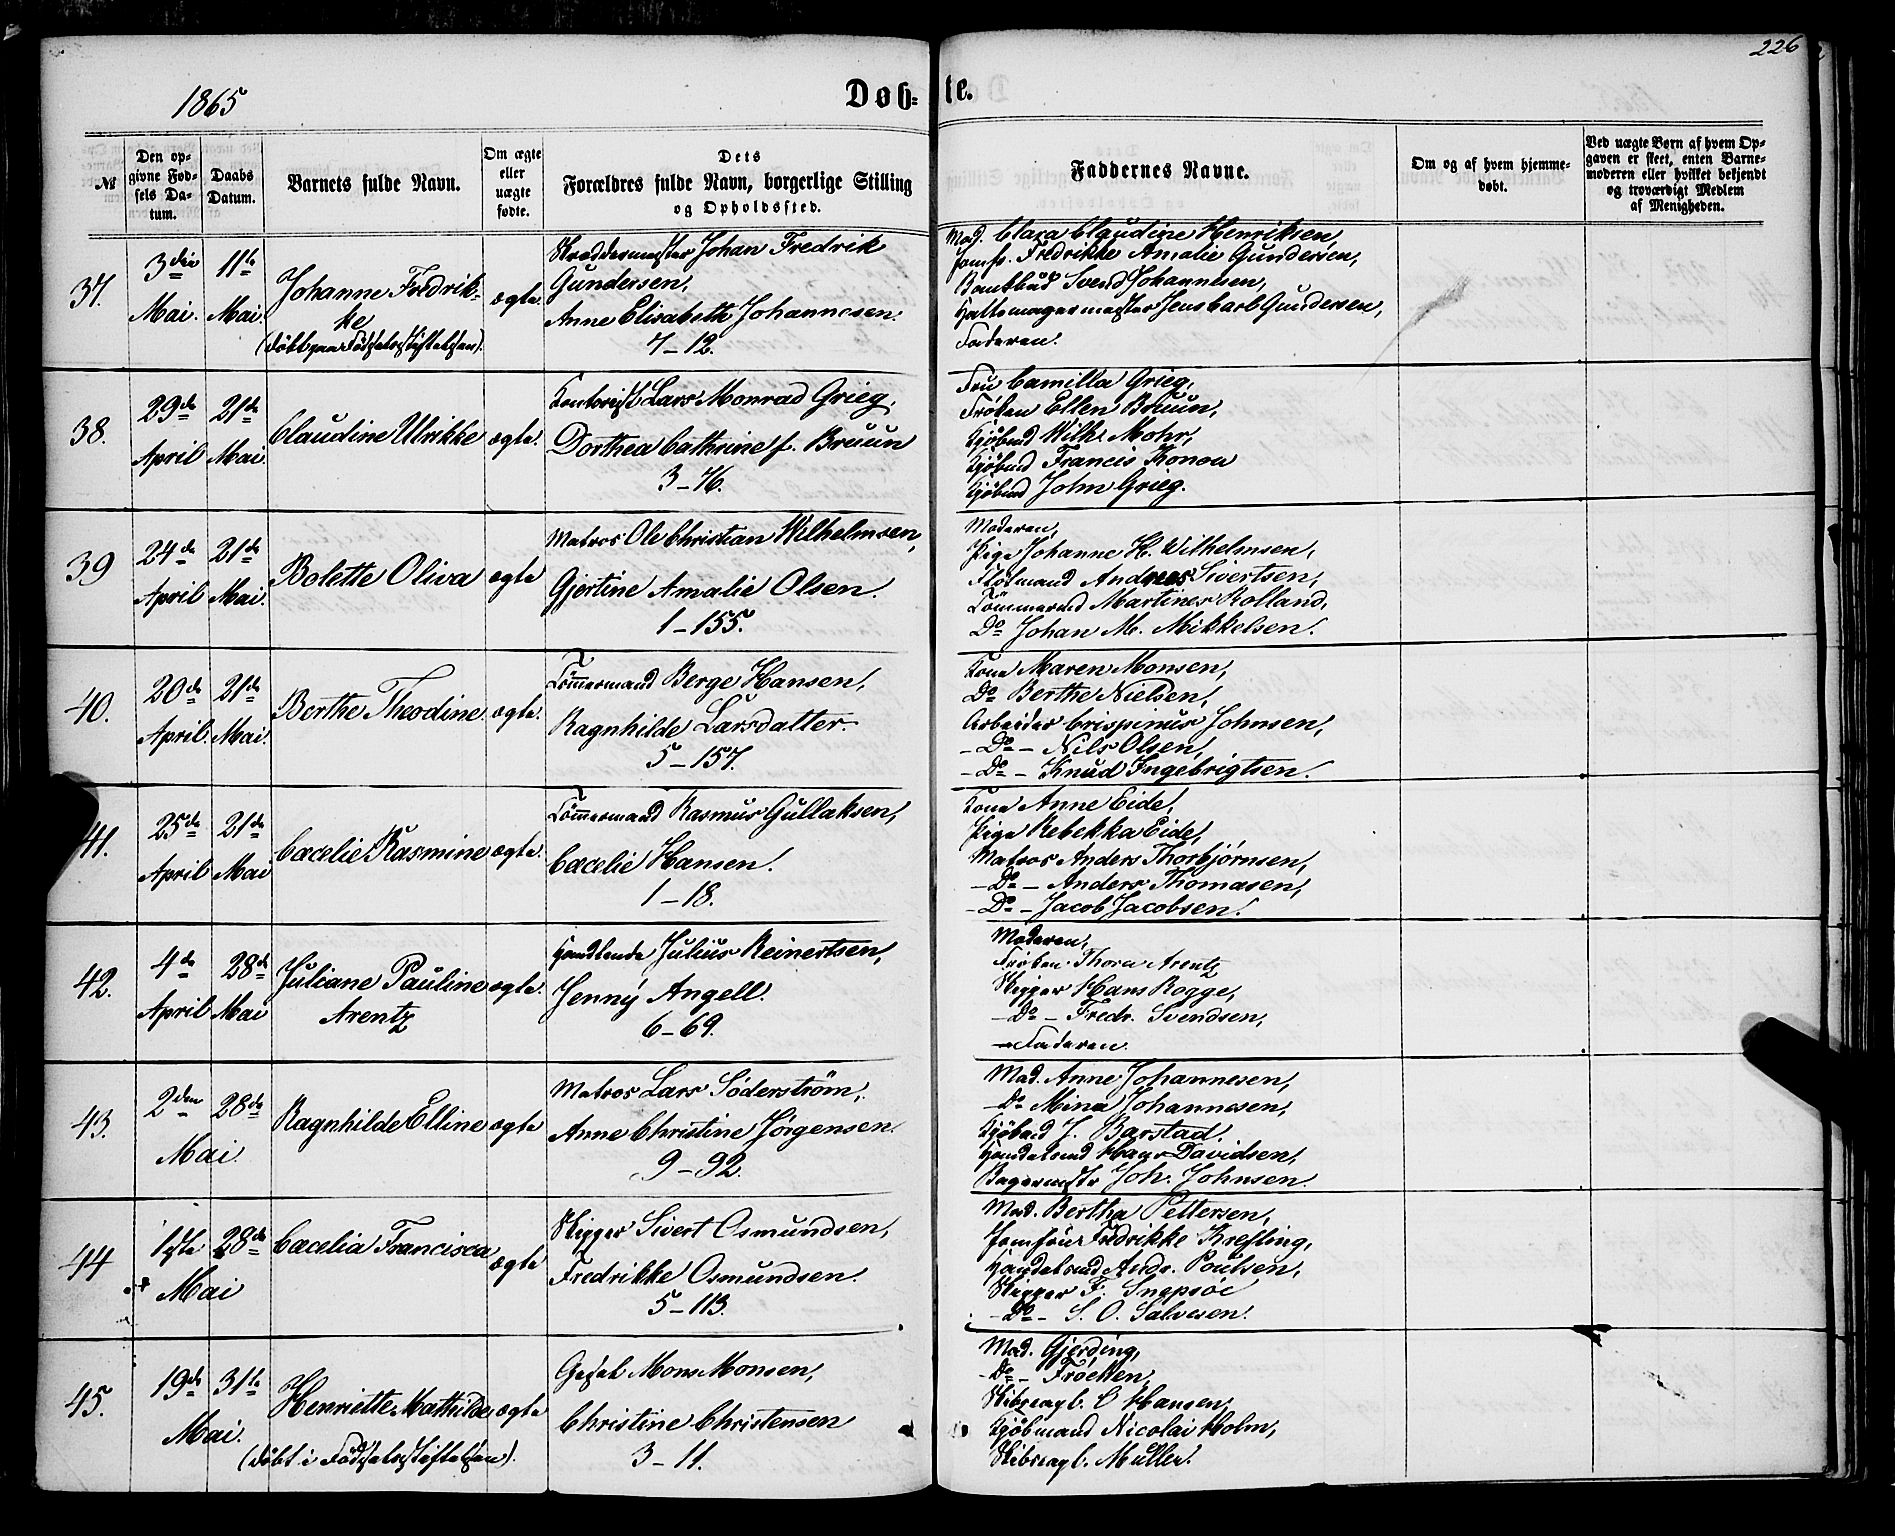 226
1865
Døb-
te.
№
Den op-
givne Fød-
sels Da-
tum.
Daabs
Datum.
Barnets fulde Navn.
Om ægte
eller
uægte
fødte.
Dets
Forældres fulde Navn, borgerlige Stilling
og Opholdssted.
Faddernes Navne.
Om og af hvem hjemme-
døbt.
Ved uægte Børn af hvem Op-
gaven er skeet, enten Barne-
moderen eller hvilket bekjendt
og troværdigt Medlem
af Menigheden.
37.
3die
Mai.
11te
Mai.
Johanne Fredrik-
ke
(døbt paa Fødselsstiftelsen).
ægte.
Skræddermester Johan Fredrik
Gundersen,
Anne Elisabeth Johannesen.
7-12.
Mad. Clara Claudine Henriksen,
Jomfr. Fredrikke Amalie Gundersen,
Svend Johannesen,
Hattemagermester Jens Carl Gundersen,
Faderen.
38.
29de
April
21de
Mai.
Claudine Ulrikke
ægte.
Kontorist Lars Monrad Grieg,
Dorthea Cathrine f. Bruun
3-76.
Fru Camilla Grieg,
Frøken Ellen Bruun,
Kjøbmd Wilh. Mohr,
Kjøbmd Francis Konow
Kjøbmd John Grieg.
39
24de
April
21de
Mai.
Bolette Oliva
ægte
Matros Ole Christian Wilhelmsen,
Gjertine Amalie Olsen.
1-155.
Moderen,
Pige Johanne H. Wilhelmsen,
Andreas Sivertsen,
Tømmermd Martines Rolland,
Do Johan M. Mikkelsen.
40.
20de
April.
21de
Mai.
Berthe Theodine.
ægte.
Tømmermand Berge Hansen,
Ragnhilde Larsdatter.
5-157.
Kone Maren Monsen,
Do Berthe Nielsen,
Arbeider Crispinus Johnsen,
- Do - Nils Olsen,
- Do - Knud Ingebrigtsen.
41.
25de
April
21de
Mai
Cæcelie Rasmine
ægte.
Tømmermand Rasmus Gullaksen,
Cæcelie Hansen.
1-18.
Kone Anne Eide,
Pige Rebekka Eide,
Matros Anders Thorbjørnsen,
- Do - Anders Thomasen,
- Do - Jacob Jacobsen.
42.
4de
April
28de
Mai
Juliane Pauline
Arentz
ægte.
Handlende Julius Reinertsen,
Jenny Angell.
6-69.
Moderen,
Frøken Thora Arentz
Skipper Hans Rogge,
- Do - Fredr. Svendsen,
Faderen.
43.
2den
Mai.
28de
Ragnhilde Elline
ægte
Matros Lars Søderstrøm,
Anne Christine Jørgensen.
9-92.
Mad. Anne Johannesen,
- Do Mina Johannesen,
Kjøbmd J. Barstad.
Handelsmd Hans Davidsen,
Bagermstr Joh. Johnsen.
44
1ste
Mai
28de
Cæcelia Francisca
ægte
Skipper Sivert Osmundsen,
Fredrikke Osmundsen.
5-113.
Mad. Bertha Pettersen,
Jomfru Fredrikke Krefling,
Handelsmd Andr. Poulsen,
Skipper F.
- Do - S. O. Salvesen.
45.
19de
Mai.
31te
Henriette Mathilde
(døbt i Fødselsstiftelsen).
ægte
Gesel Mons Monsen,
Christine Christensen
3-11.
Mad. Gjerding,
- Do - Frøchen,
Skibscapt. O Hansen,
Kjøbmand Nicolai Holm,
Skibscapt. Muller.